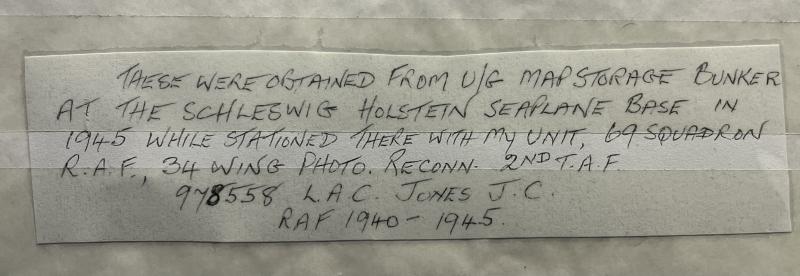 THESE WERE OBTAINED FROM U/G MAP STORAGE BUNKER
AT THE SCHLESWIG HOLSTEIN SEAPLANE BASE IN
1945 WHILE STATIONED THERE WITH MY UNIT, 69 SQUADRON
R.A.F., 34 WING PHOTO. RECONN. 2ND T.A.F.
978558 L.A.C. JONES J.C.
RAF 1940-1945.